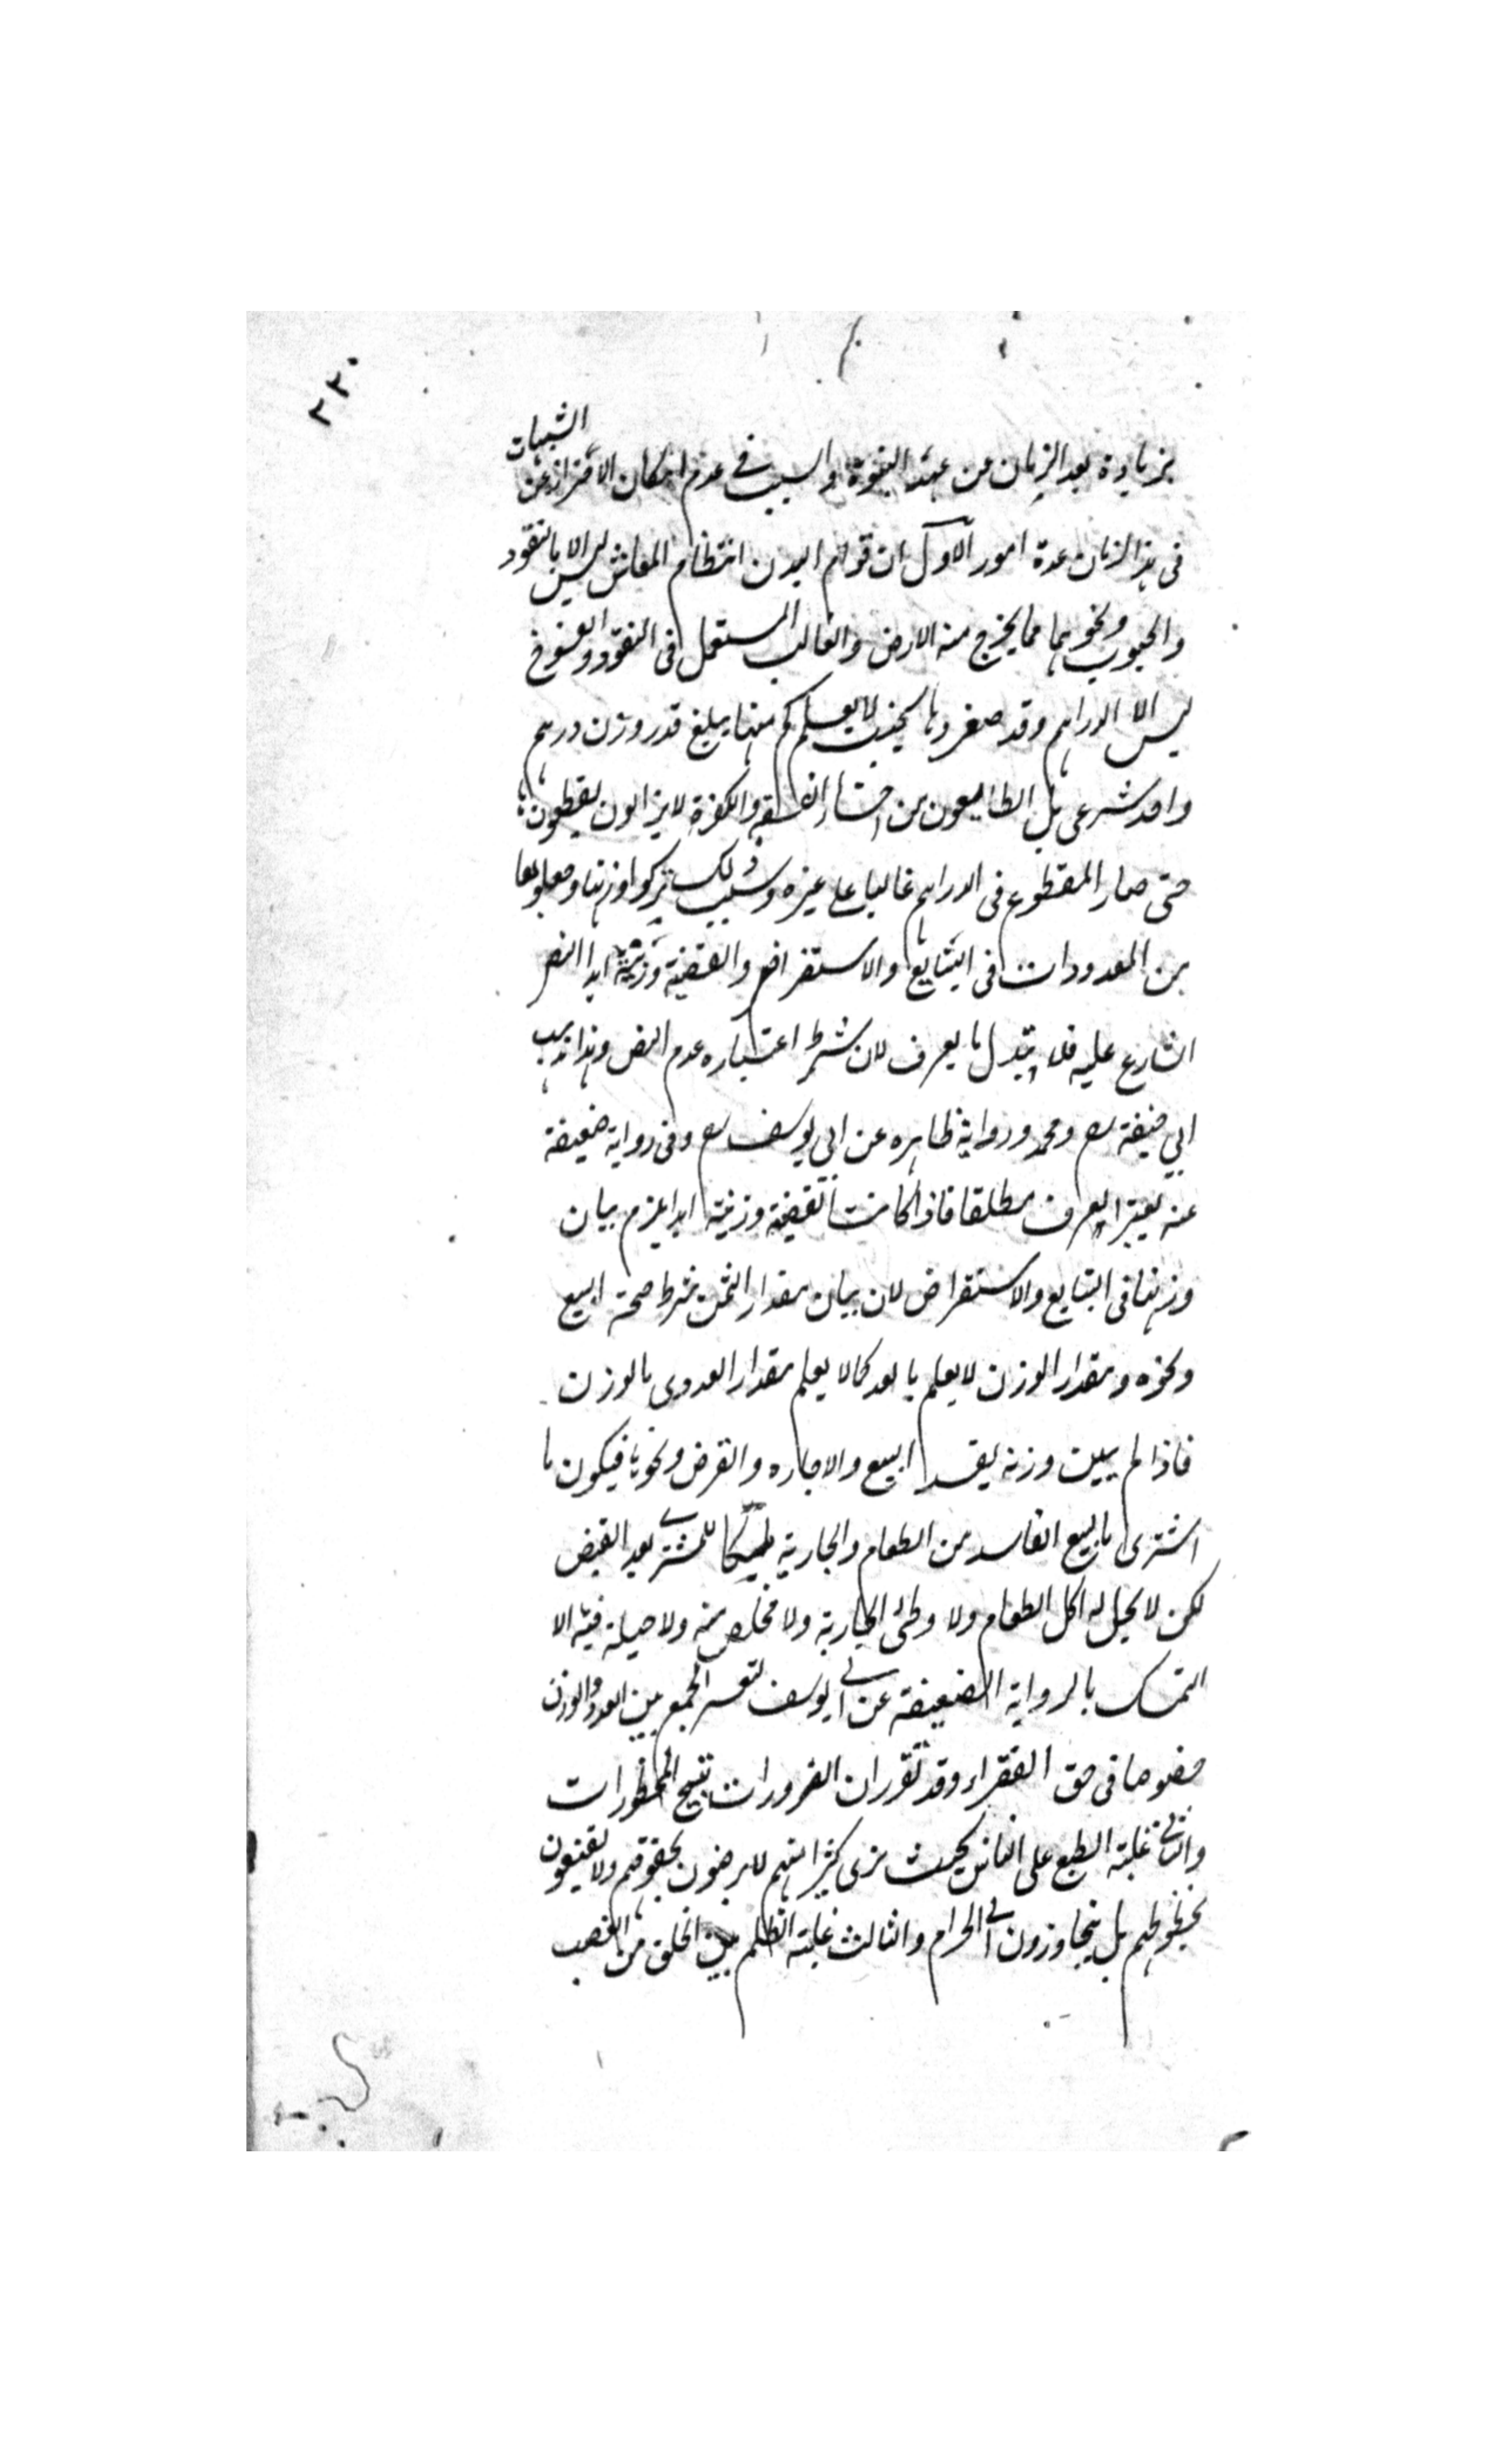 ٢٣٠
بزيادة بعد الزمان من عهد النبوة والسبب في عدم امكان الاحتراز عن الشبهات
فى هذا الزمان عدة امور الاول ان قوام البدن انتظام المعاش ليس الا بالنقود
والحبوب ونحوهما مما يخرج منه الارض والغالب المستعمل فى النقود والفسوخ
ليس الا الدراهم وقد صغروها بحيث لا يعلم كم منها يبلغ قدر وزن درهم
واحد شرعى بل الطامعون من الفسقه والكفرة لا يزالون يقطعون
حتى صار المقطوع فى الدراهم غالبا على غيره وسبب ذلك تركوا وزنها وجعلوها
من المعدودات فى التبايع والاستقراض والفضية وزنية ابدا النص
الشارع عليه فلا يتبدل بالعرف لان شرط اعتباره عدم النص وهذا مذهب
ابي حنيفة رح ومحمد ورواية ظاهره عن ابي يوسف رح وفى رواية ضعيفة
عنه يعتبر العرف مطلقا فاذا كانت الفضية وزنية ابدا يلزم بيان
وزنها فى التبايع والاستقراض لان بيان مقدار الثمن شرط صحة البيع
ونحوه ومقدار الوزن لا يعلم بالعد كما لا يعلم مقدار العددى بالوزن
فاذا لم يبين وزنه يفسد البيع والاجاره والقرض ونحوها فيكون ما
اشترى بالبيع الفاسد من الطعام والجارية ملكا للمشترى بعد القبض
لكن لا يحل له اكل الطعام ولا وطئ الجارية ولا مخلص منه ولا حيلة فيه الا
التمسك بالرواية الضعيفة عن ابى يوسف لتعسر الجمع بين العدد والوزن
خصوصا فى حق الفقراء وقد تقرر ان الضرورات تبيح المحظورات
والثانى غلبة الطمع على الناس بحيث ترى كثيرا منهم لا يرضون بحقوقهم ولا يقنعون
بحظوظهم بل يتجاوزون الى الحرام والثالث غلبة الظلم بين الخلق من الغصب